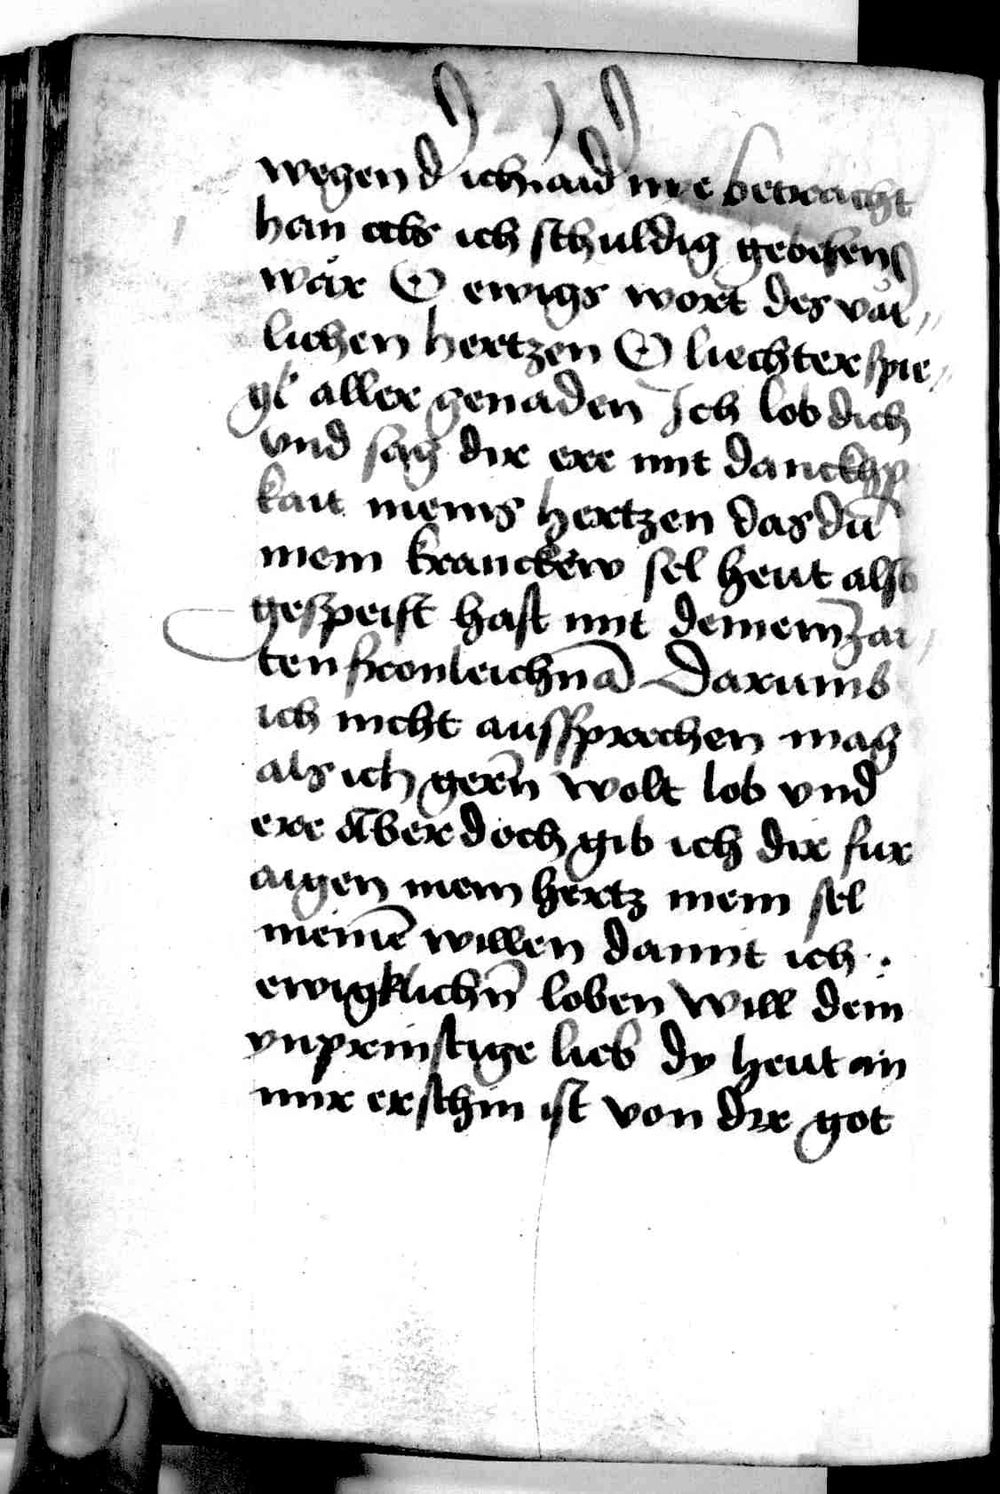 wegen d ich laid nye betracht
han als ich schuldig gebesen
wär O ewigs wort des vät„
lichen hertzen O liechter spie„
gl aller genaden Ich lob dich
vnd sag dir ere mit danckhp
kait meins hertzen das dū
mein kranckew sel heut also
gespeist hast mit deinem zar„
ten fronleichnā Darumb
ich nicht aussprechen mag
als ich gern̄ wolt lob vnd
ere Aber doch gib ich dir fur
aigen mein hertz mein sel
meinē willen damit ich .
ewigklichn̄ loben will dein
ynprinstige lieb dy heut an
mir erschin ist von dir got